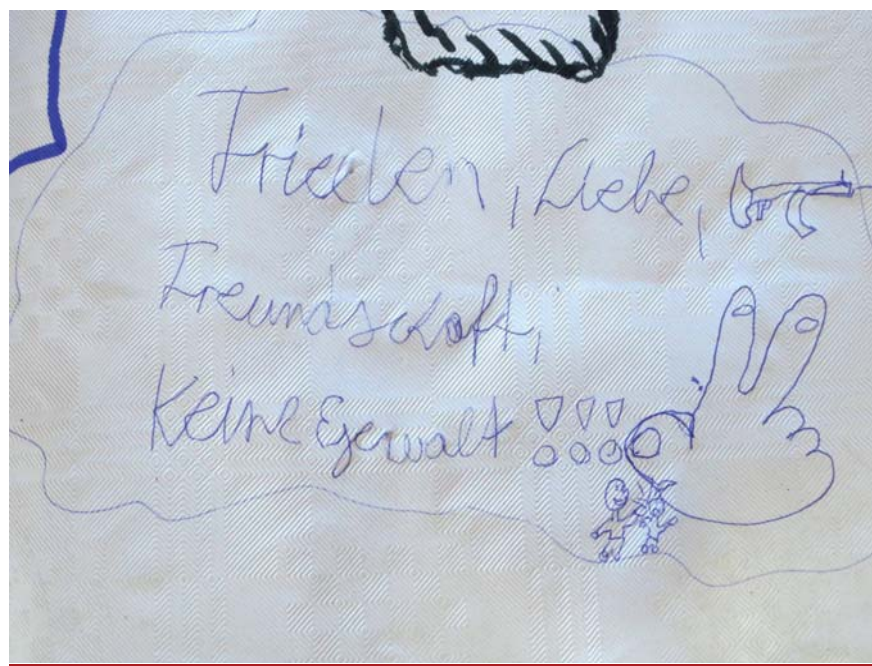 Frieden, Liebe,
Freundschaft,
Keine Gewalt !!!